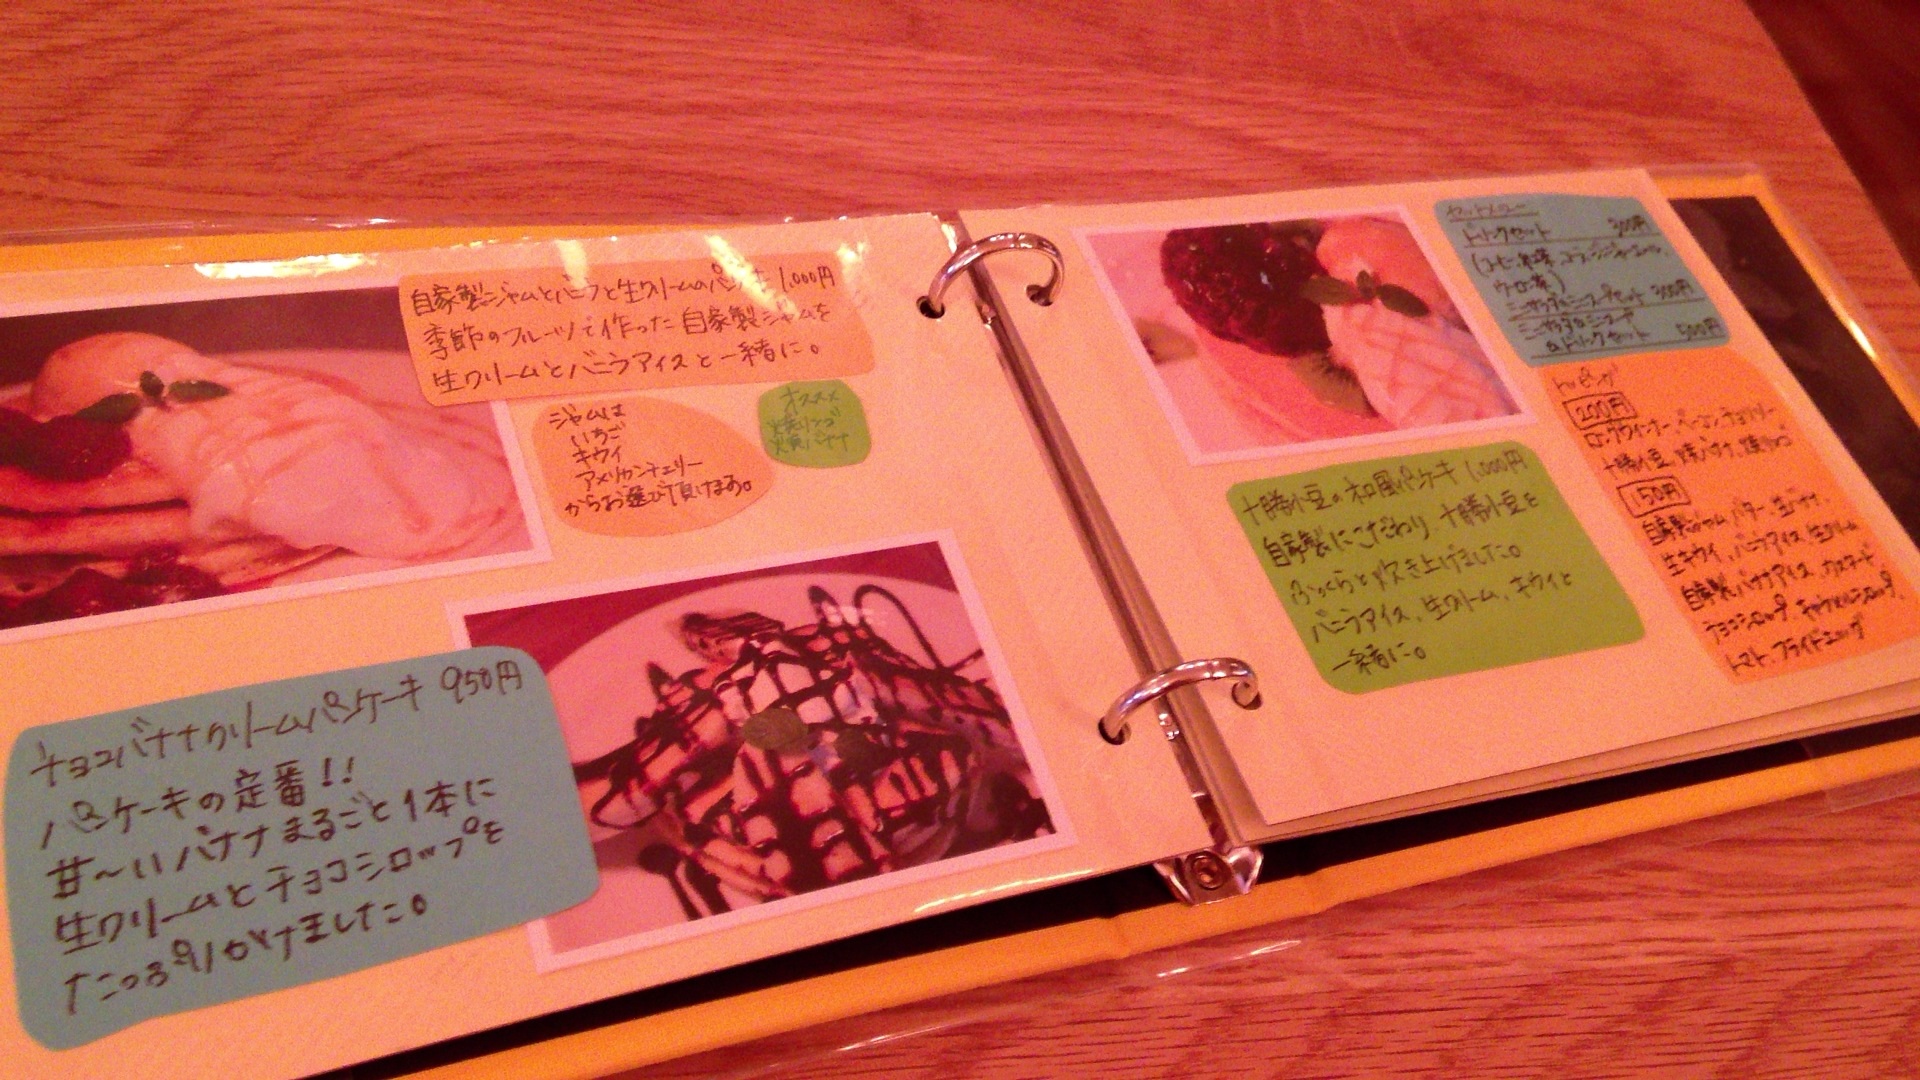 自家製ジャムとバニラと生クリームのパンケーキ 1,000円
季節のフルーツで作った自家製ジャムを
生クリームとバニラアイスと一緒に。
ジャムは
いちご
キウイ
アメリカンチェリー
からお選び頂けます。
オススメ
焼リンゴ
焼バナナ
チョコバナナクリームパンケーキ 950円
パンケーキの定番!!
甘〜いバナナまるごと1本に
生クリームとチョコシロップを
たっぷりかけました。
セットメニュー
ドリンクセット 300円
(コーヒー、紅茶、コーラ、ジンジャーエール、
ウーロン茶)
ミニサラダ&ミニスープセット 300円
ミニサラダ&ミニスープ
&ドリンクセット 500円
トッピング
200円
ロングウインナー、ベーコン、チョリソー
十勝小豆、焼バナナ、焼リンゴ
150円
自家製ジャム、バター、生バナナ、
生キウイ、バニラアイス、生クリーム
自家製バナナアイス、カスタード
チョコシロップ、キャラメルシロップ、
トマト、フライドエッグ
十勝小豆の和風パンケーキ 1,000円
自家製にこだわり、十勝小豆を
ふっくらと炊き上げました。
バニラアイス、生クリーム、キウイと
一緒に。